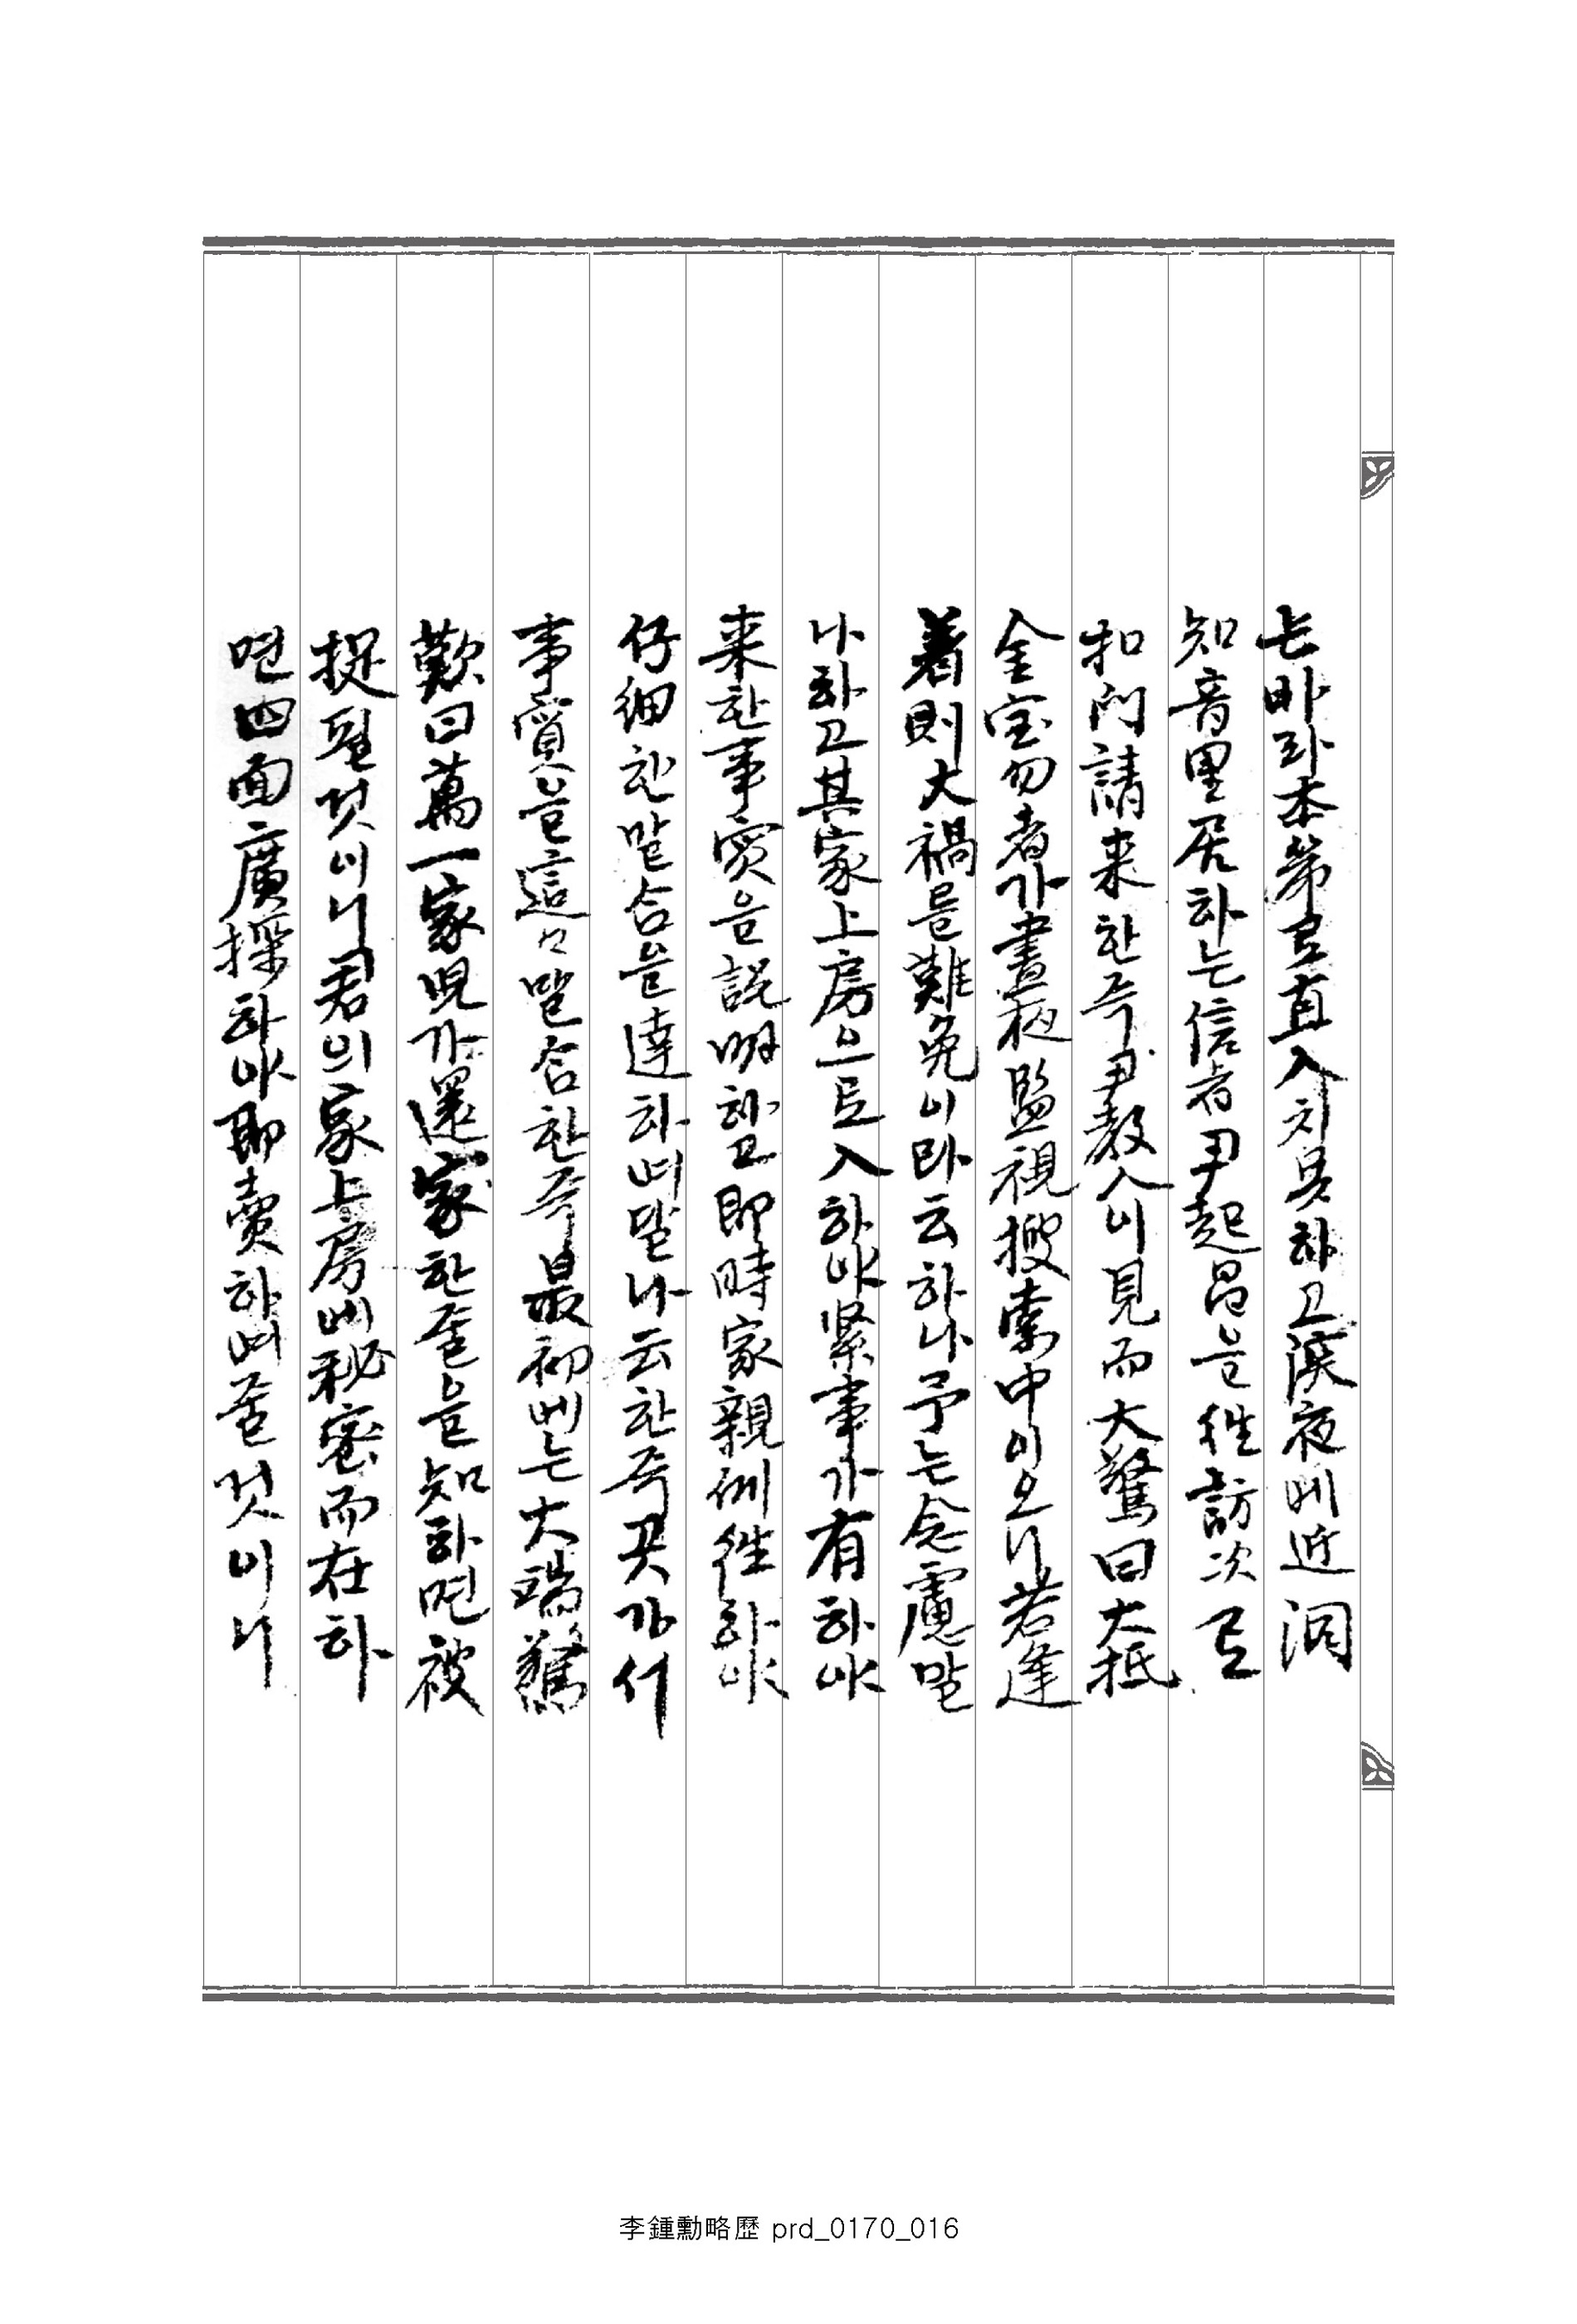 는 바라 本第로 直入치 못하고 深夜에 近洞
知音里居하는 信者 尹起昌을 往訪次로
扣門請來한즉 尹敎人이 見而大驚曰 大抵
金宝勿者가 晝夜 監視搜索中이오니 若逢
着則大禍를 難免이라 云하나 予는 念慮말
나하고 其家上房으로 入하야 緊事가 有하야
來한 事實을 說明하고 卽時 家親侧 往하야
仔細한 말삼을 達하여 달나 云한즉 곳 가서
事實을 這々 말삼한즉 最初에는 大端驚
歎曰 萬一 家兒가 還家한 줄을 知하면 被
捉될 것이니 君의 家上房에 秘密而在하
면 四面廣探하야 卽賣하여 줄 것이니
李鍾勳略歷 prd_0170_016